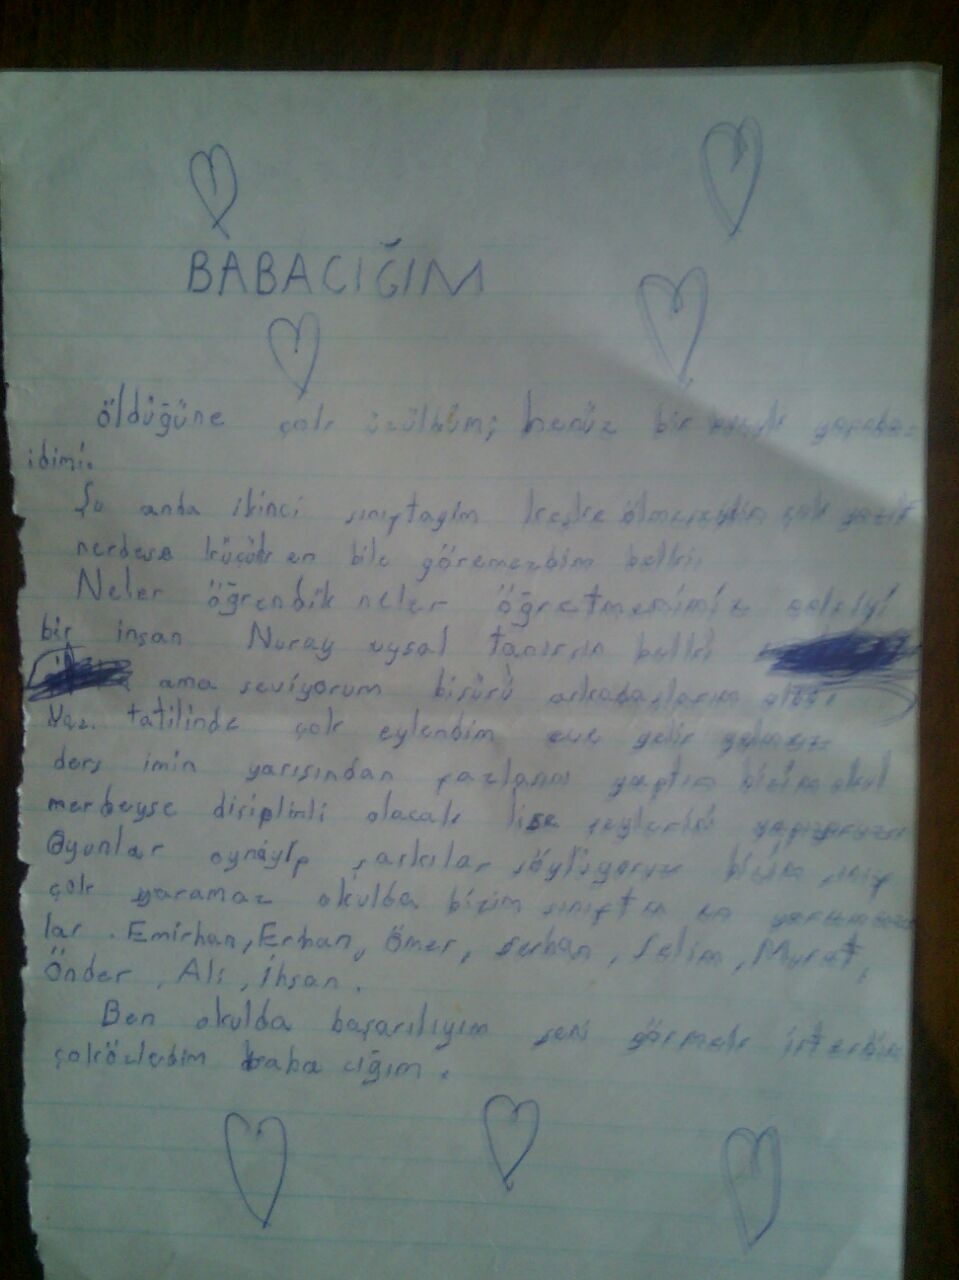 BABACIĞIM
öldüğüne çok üzüldüm; henüz bir
idimi.
Şu anda ikinci sınıftayım keşke ölmeseydin çok yazık
nerdese küçükken bile göremezdim belkii
Neler öğrendik neler öğretmenimiz
bir insan Nuray uysal tanırsın belki
ama seviyorum bisürü arkadaşlarım
Yaz. tatilinde çok eylendim
ders imin yarısından fazlasını yaptım bizim okul
merdeyse disiplinli olacak lise şeylerini yapıyoruz
Oyunlar oynayıp şarkılar söylüyoruz bizim sınıf
çok yaramaz okulda bizim sınıftın en yaramaz
lar. Emirhan, Erhan, Ömer, Serhan, Selim, Murat,
Önder, Ali, İhsan.
Ben okulda başarılıyım seni görmek isterdim
çoközledim baba cığım.